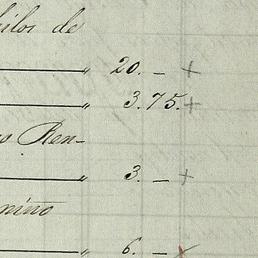 kilos de
———— " 20. — +
———— " 3.75. +
Ren-
———— " 3. — +
nino
———— " 6. — x